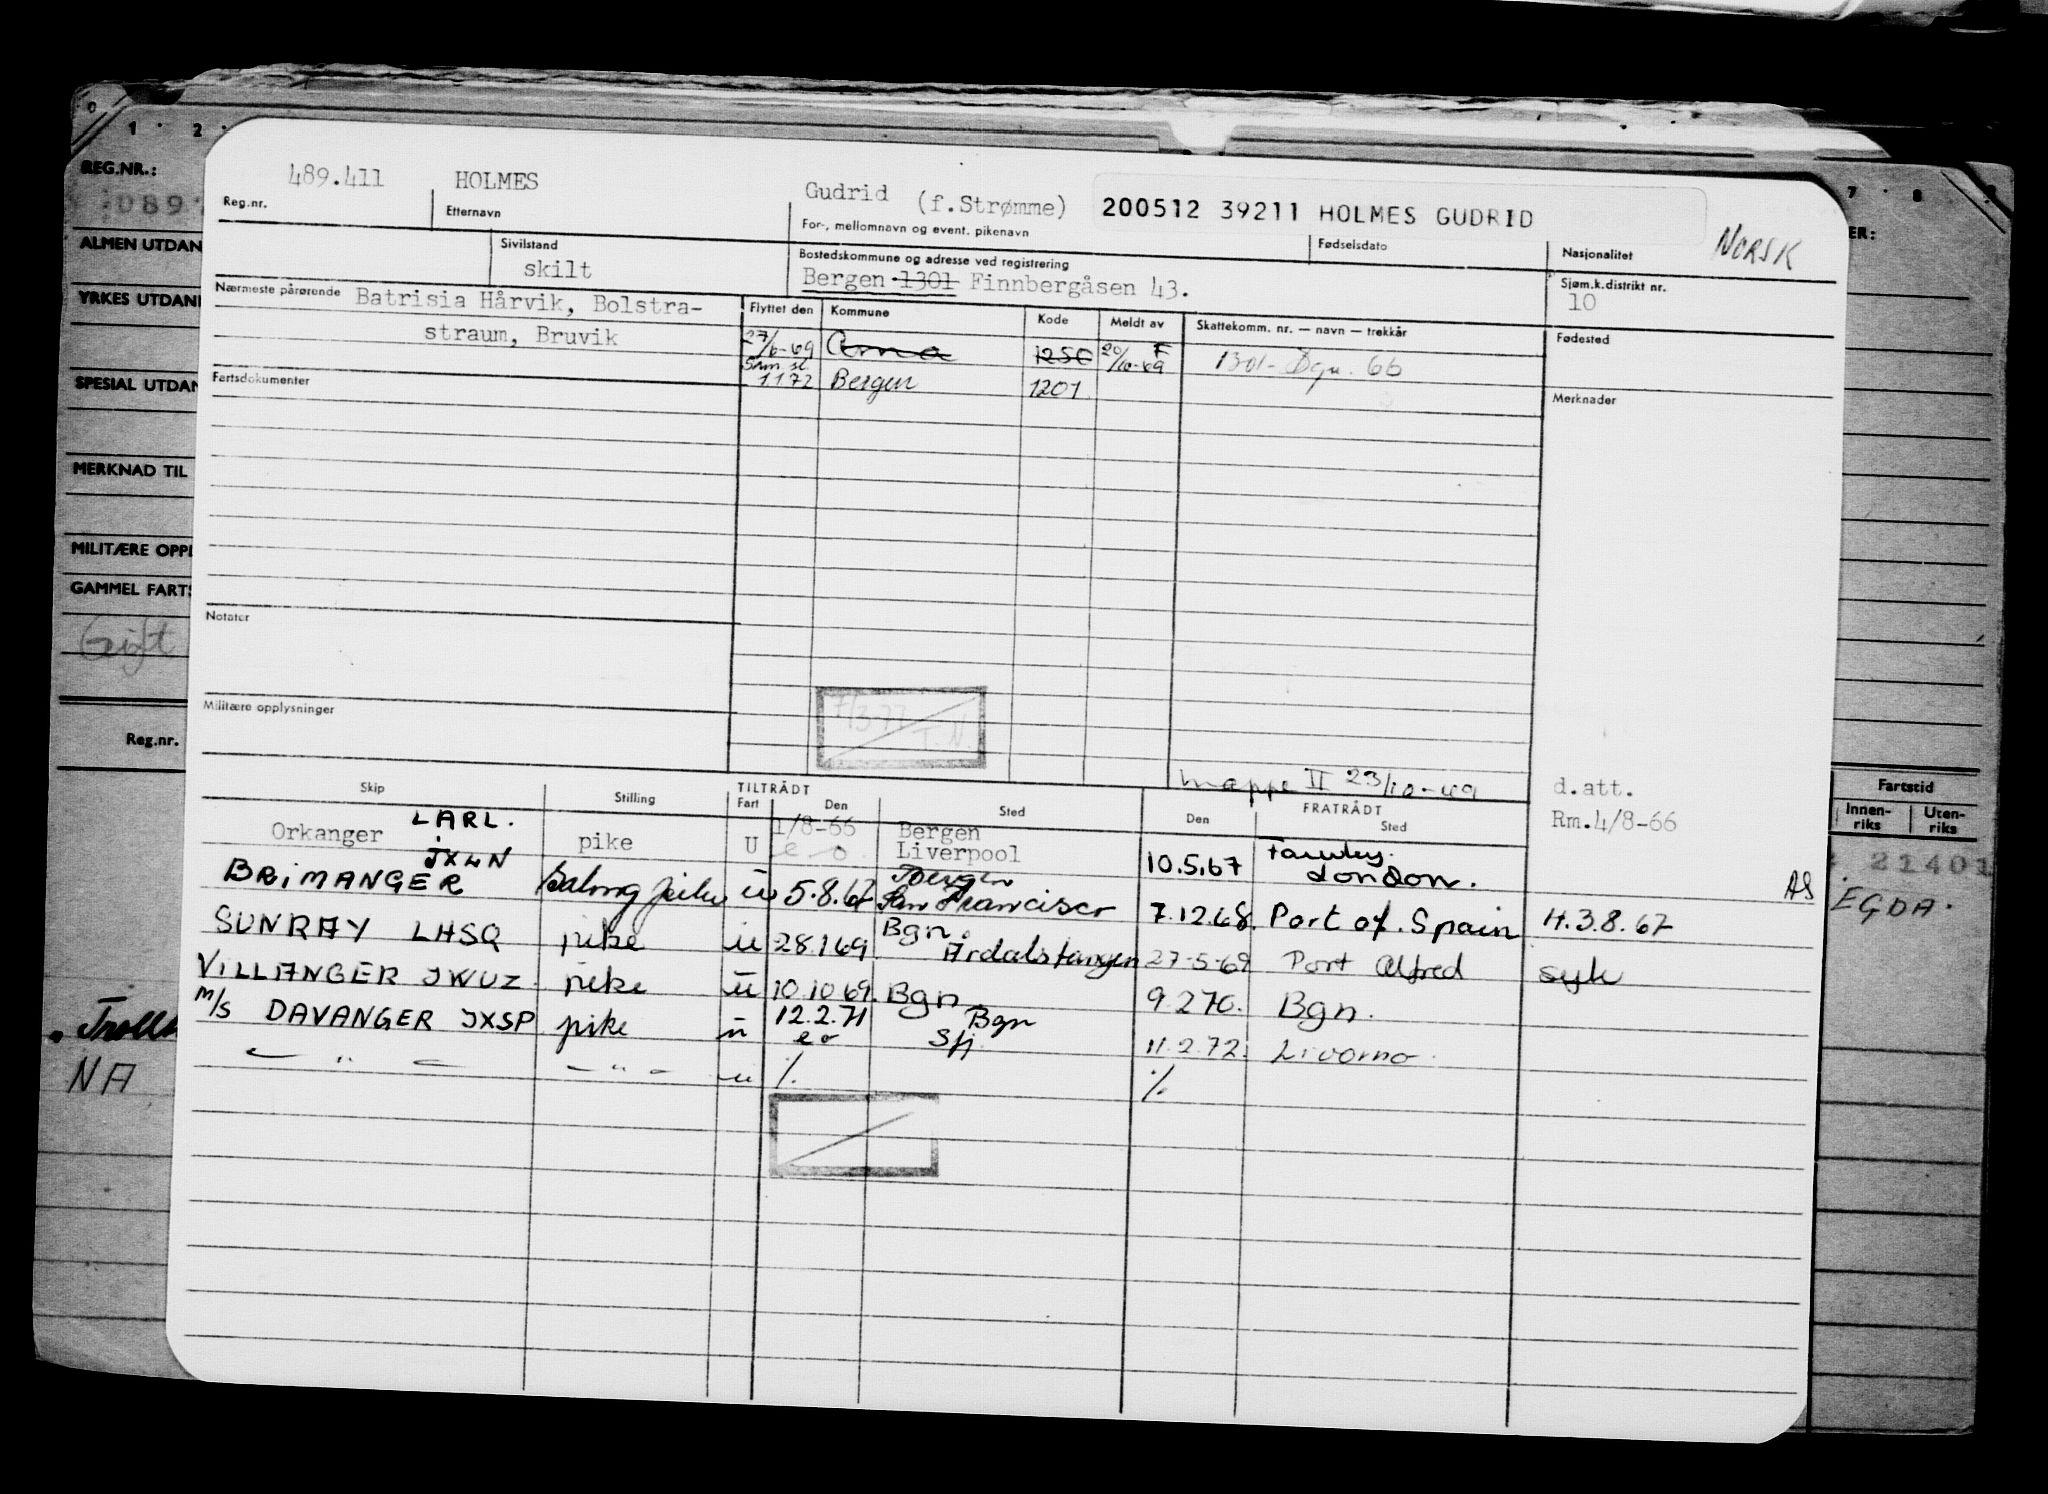 0 1 · 2 ·
7 · 8
REG.NR.:
ALMEN UTDAN
YRKES UTDAN
SPESIAL UTDAN
MERKNAD TIL
MILITÆRE OPPL
GAMMEL FARTS
Gift
Reg.nr.
NA
ER:
Fartstid
Innen-riks Uten-riks
21401
EGDA.
489.411 HOLMES Gudrid (f.Strømme) 200512 39211 HOLMES GUDRID
Reg.nr. Etternavn For-, mellomnavn og event. pikenavn Fødselsdato Nasjonalitet NORSK
Sivilstand skilt
Bostedskommune og adresse ved registrering
Bergen 1301 Finnbergåsen 43.
Sjøm.k.distrikt nr.
10
Nærmeste pårørende Batrisia Hårvik, Bolstra-
straum, Bruvik
Flyttet den Kommune Kode Meldt av Skattekomm. nr. — navn — trekkår Fødested
27/6-69 Arna 1250 20/10-69 F 1301- Bgn. 66
Fartsdokumenter
Sam. sl. 1172 Bergen 1201
Merknader
Notater
Militære opplysninger
7/3-77 T.N.
Mappe II 23/10-69
d.att.
Rm.4/8-66
Skip Stilling TILTRÅDT Fart Den Sted FRATRÅDT Den Sted
Orkanger LARL. pike U 1/8-66 e o Bergen Liverpool 10.5.67 London.
BRIMANGER JXWN Salongpike u 5.8.67 Bergen San Francisco 7.12.68. Port of. Spain H.3.8.67 AS
SUNRAY LHSQ pike u 28.1.69 Bgn. Årdalstangen 27-5-69 Port Alfred syk
VILLANGER JWUZ pike u 10.10.69. Bgn 9.2.70. Bgn.
M/S DAVANGER JXSP pike u 12.2.71 e o Bgn Sfj. 11.2.72. Livorno.
— " — — " — u %. %.